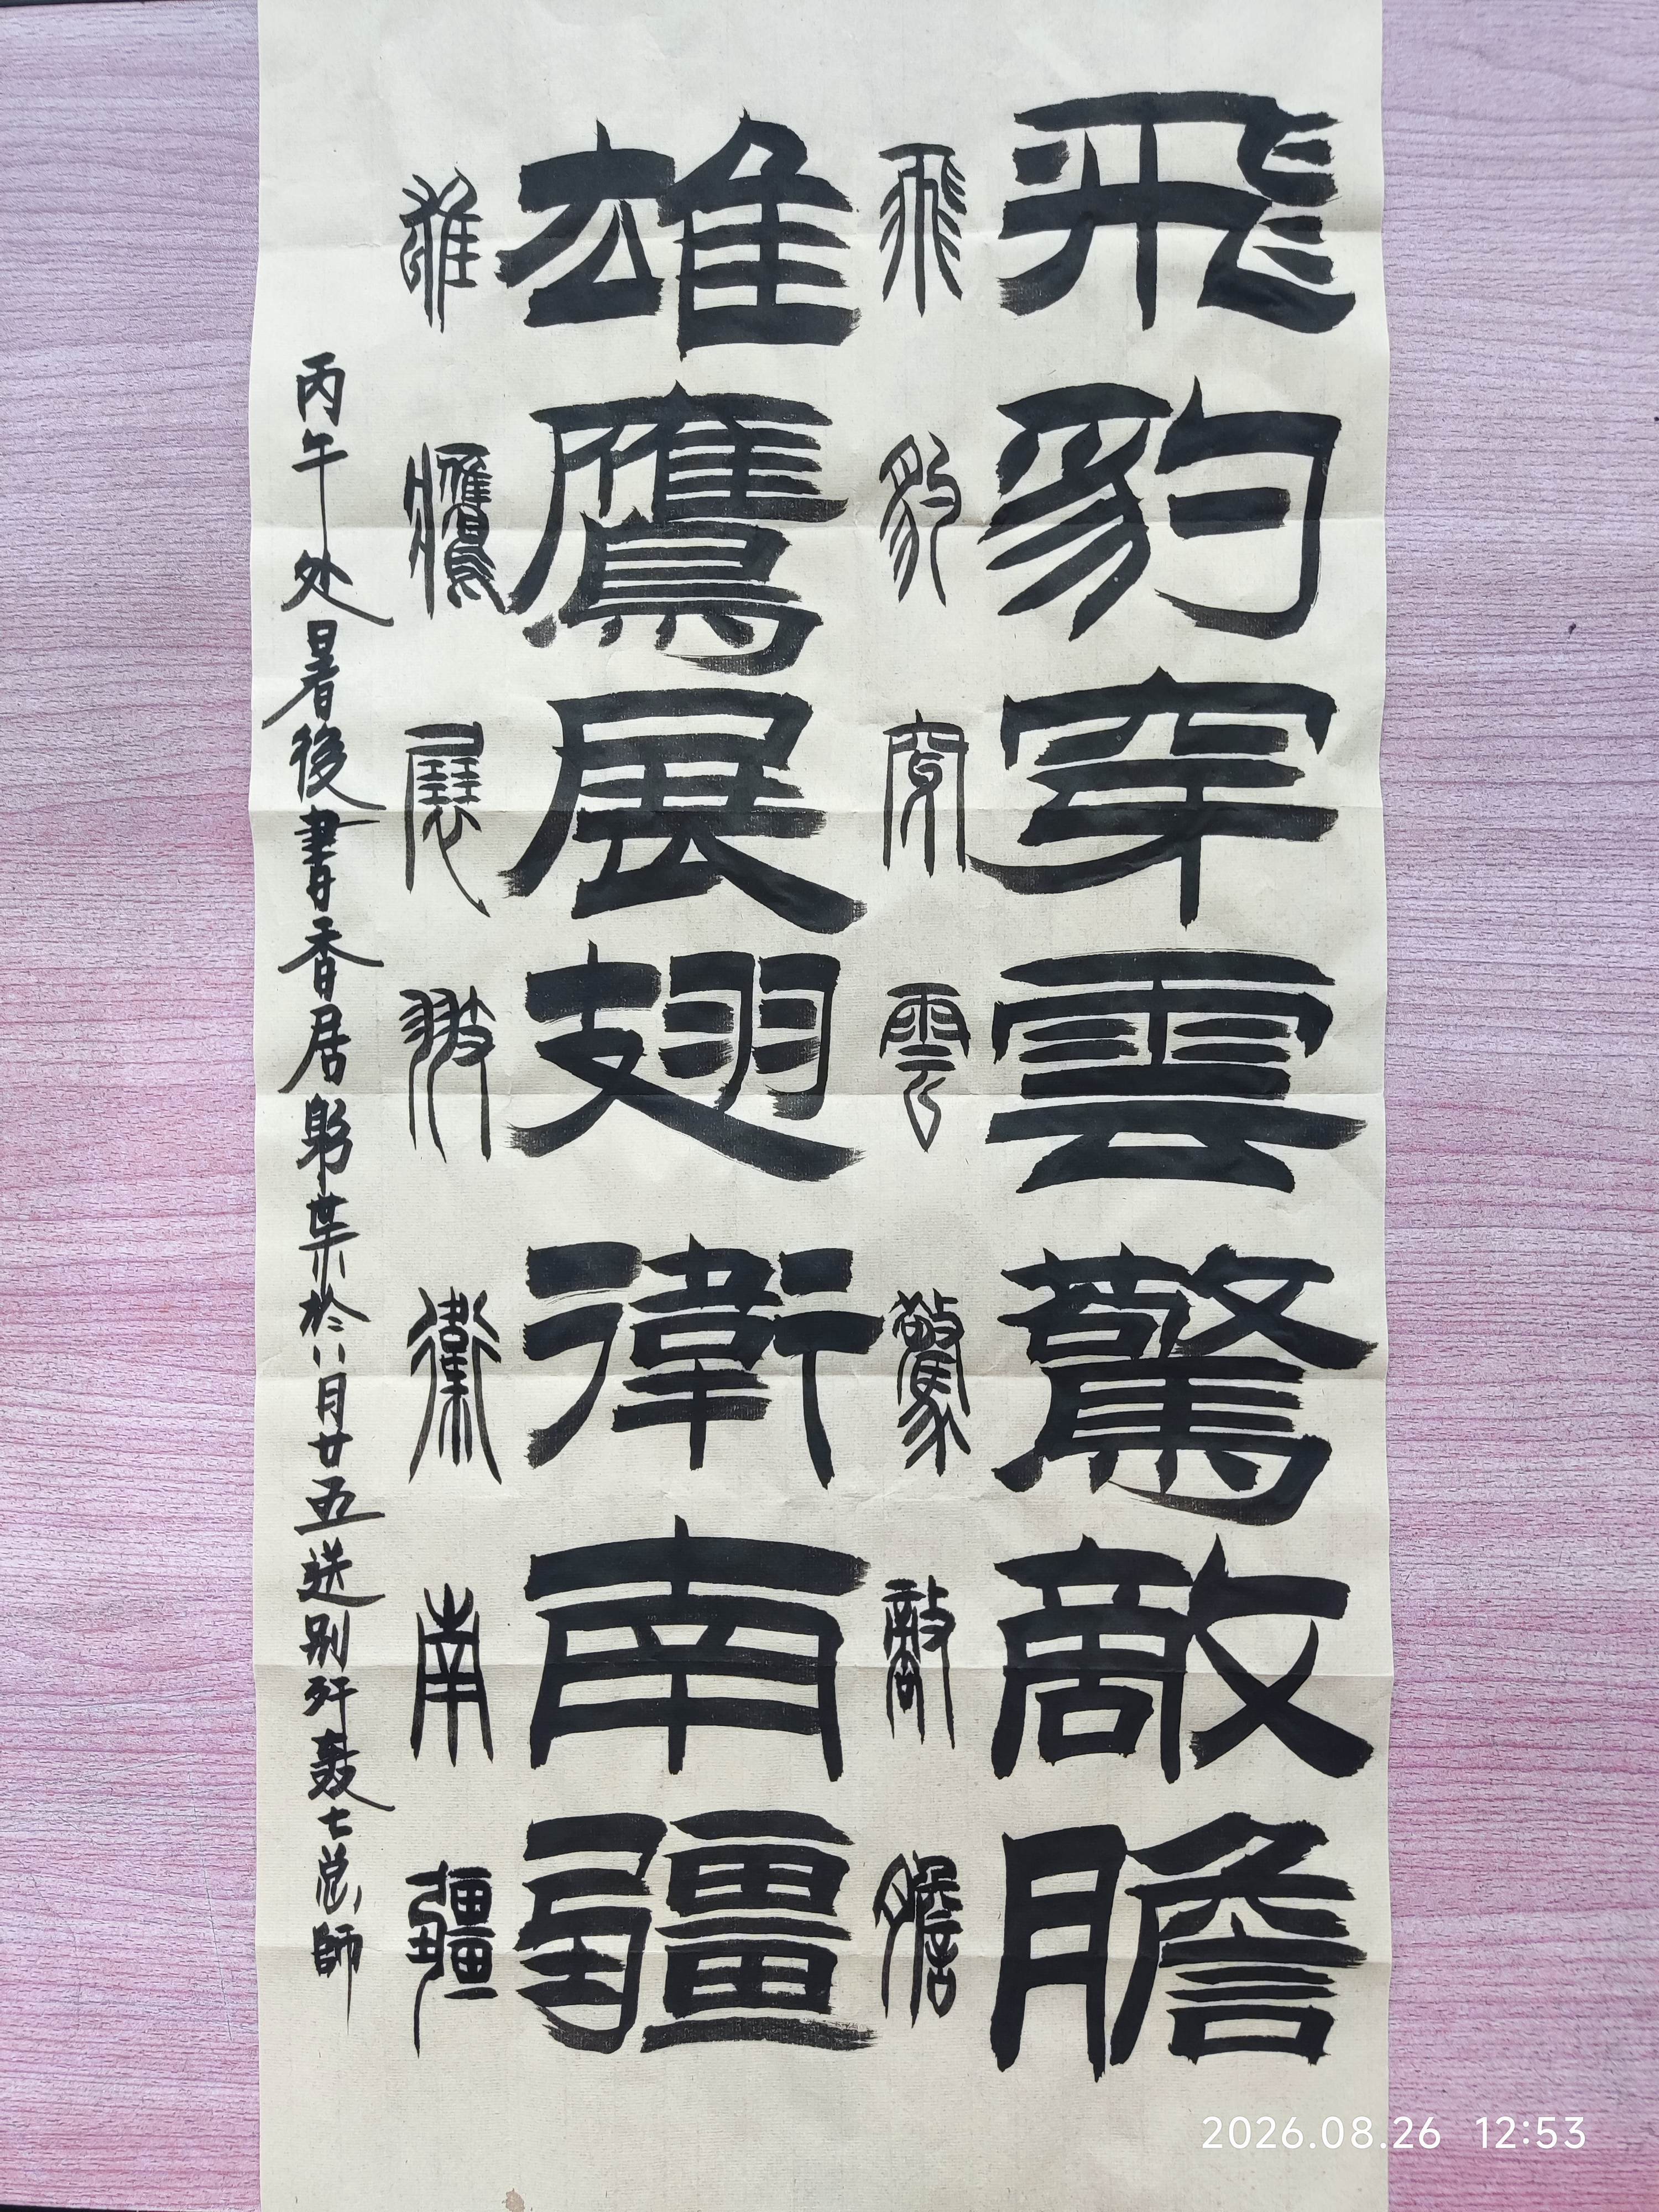 飛豹穿雲驚敵膽
飛豹穿雲驚敵膽
雄鷹展翅衛南疆
雄鷹展翅衛南疆
丙午处暑後書香居躬葉於八月廿五送别歼轰七总師
2026.08.26 12:53